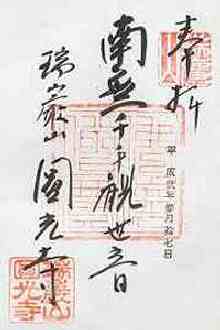 奉拝
平成弐年 月拾七日
南無千手観世音
瑞巌山 圓光寺
瑞巌山
圓光寺